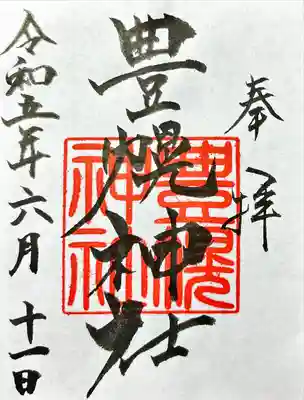 奉拝
豊幌神社
豊幌
神社
令和五年六月十一日